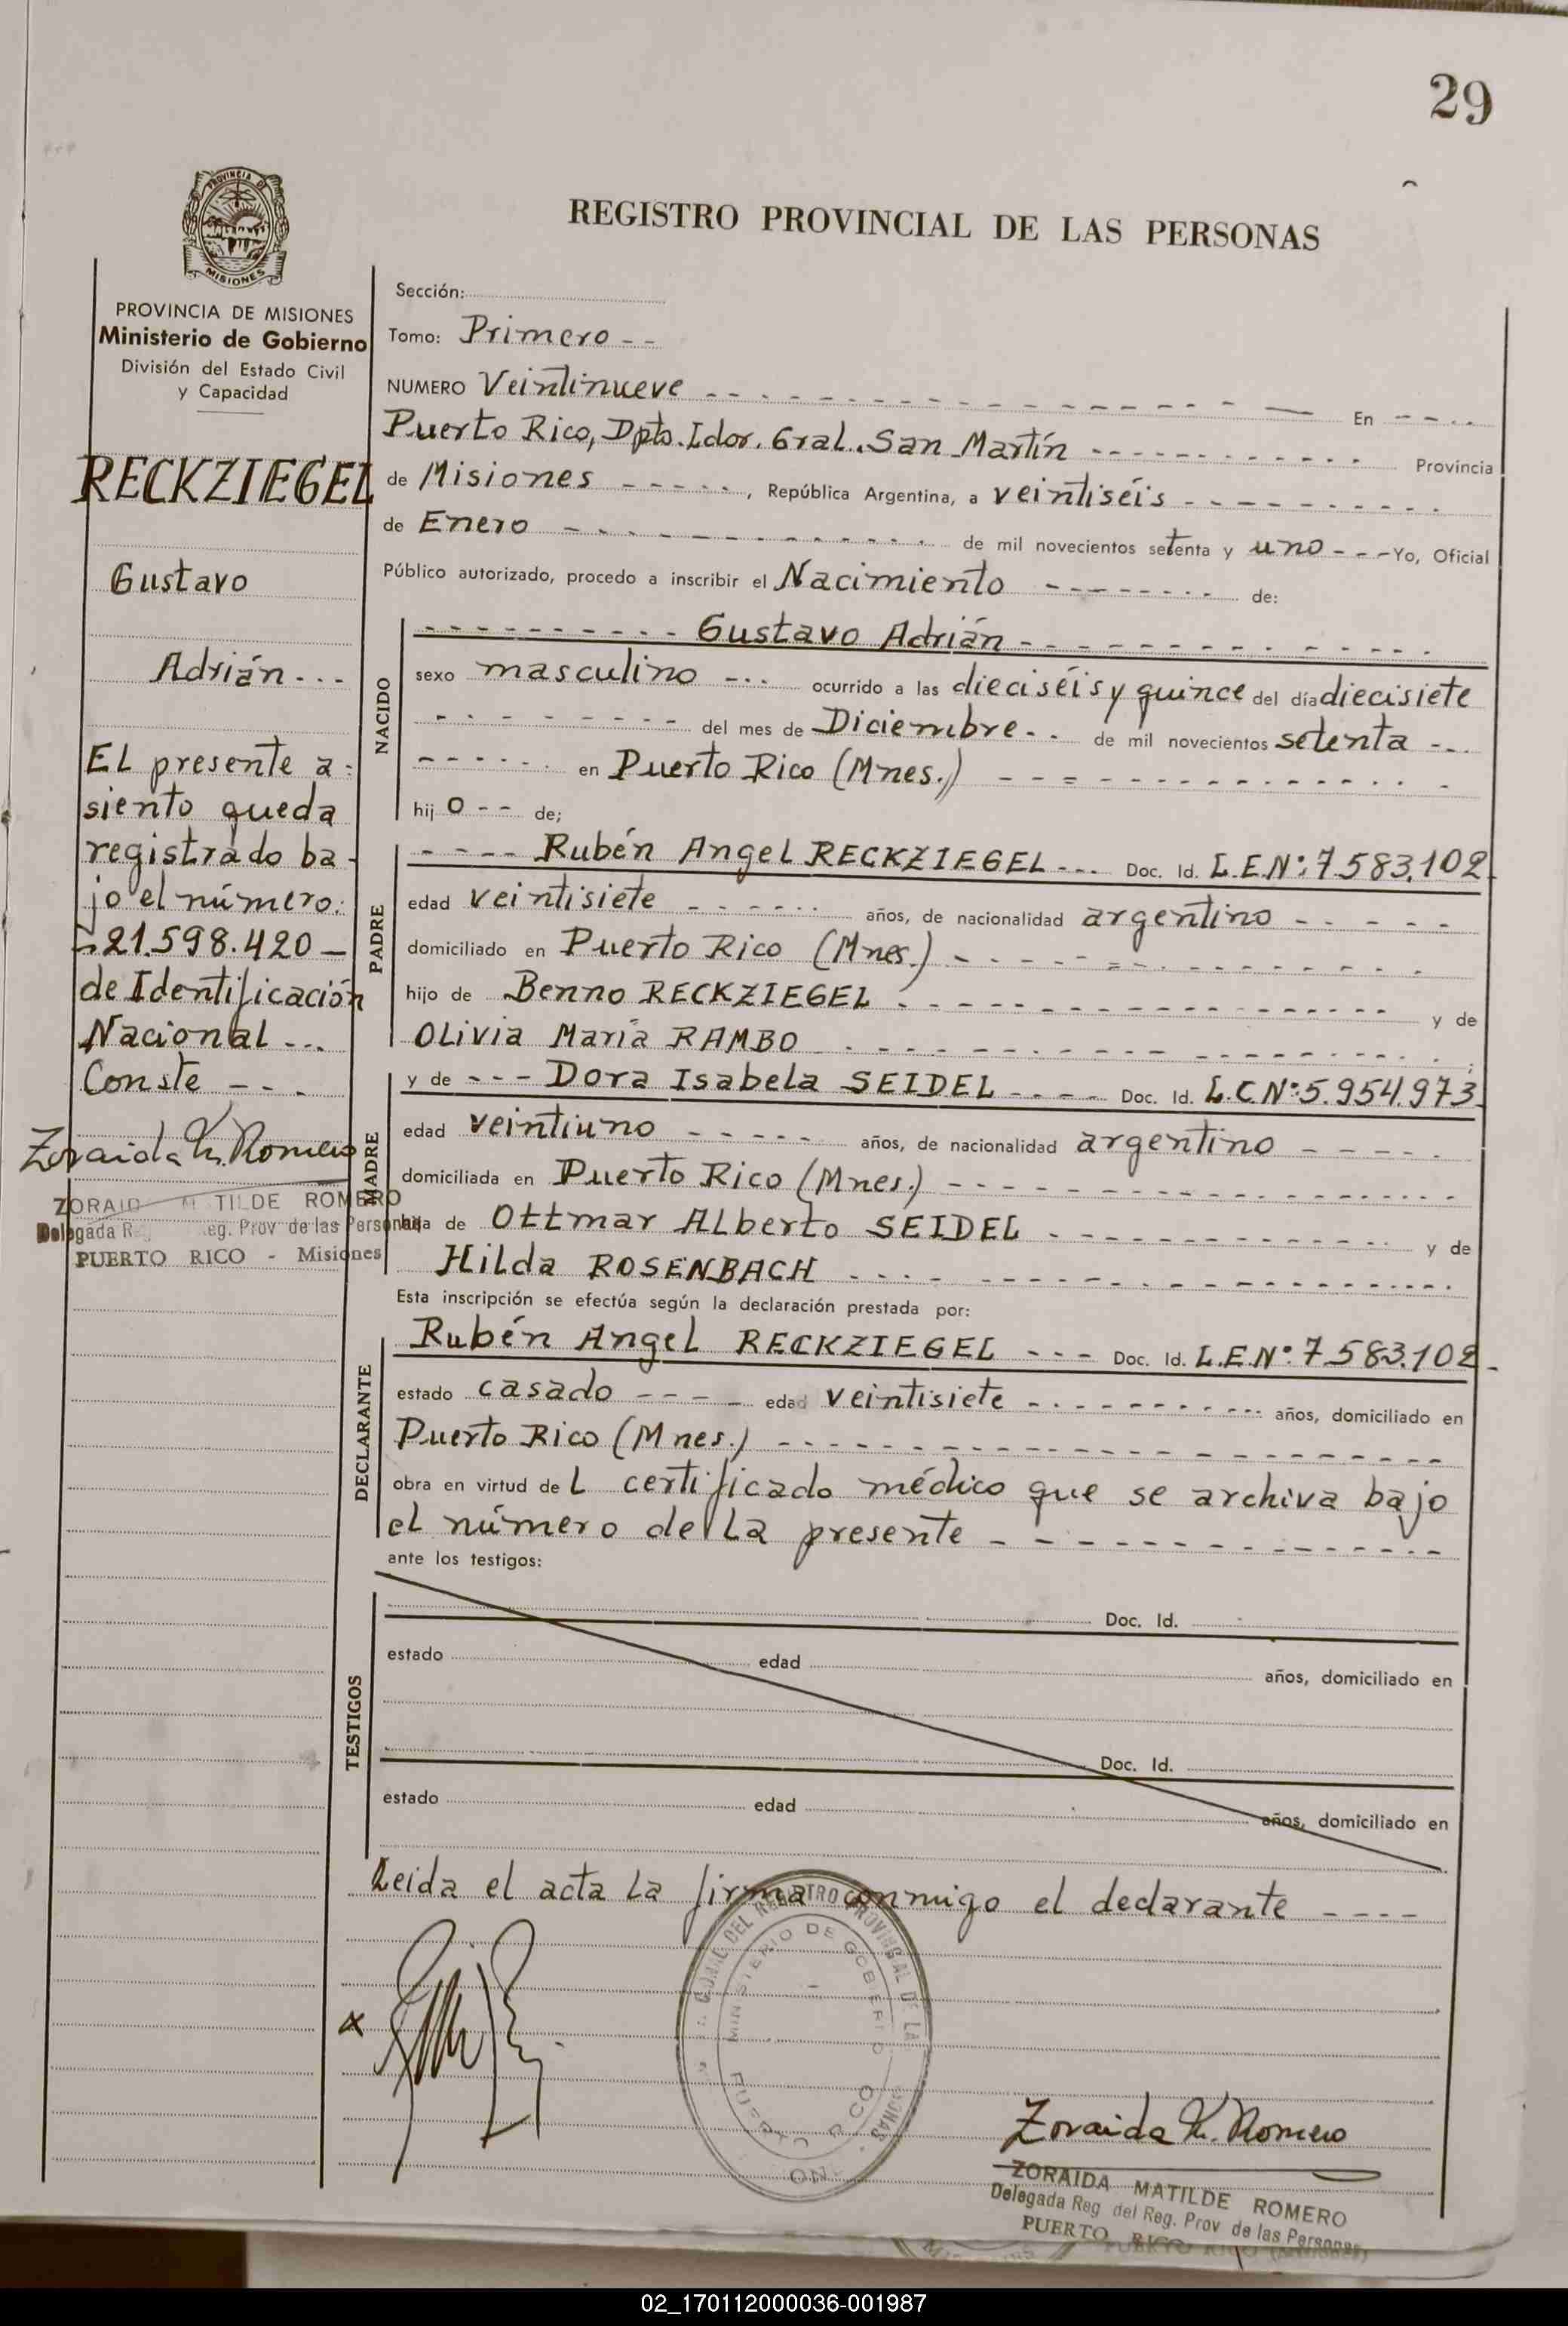 29
REGISTRO PROVINCIAL DE LAS PERSONAS
PROVINCIA DE MISIONES
Ministerio de Gobierno
División del Estado Civil
y Capacidad
RECKZIEGEL
Gustavo
Adrián - - -
EL presente a-
siento queda
registrado ba-
jo el número:
21.598.420 —
de Identificación
Nacional - - -
Conste - - -
Zoraida M. Romero
ZORAID M TILDE ROMERO
Delegada Reg. Prov de las Personas
PUERTO RICO - Misiones
Sección:
Tomo: Primero - -
NUMERO Veintinueve - - - En - - -
Puerto Rico, Dpto. Ldor. Gral. San Martín - - - Provincia
de Misiones - - - , República Argentina, a veintiséis - - -
de Enero - - - de mil novecientos setenta y uno - - - Yo, Oficial
Público autorizado, procedo a inscribir el Nacimiento - - - de:
NACIDO
- - - Gustavo Adrián - - -
sexo masculino - - - ocurrido a las dieciséis y quince del día diecisiete
- - - del mes de Diciembre - - de mil novecientos setenta - - -
- - - en Puerto Rico (Mnes.) - - -
hij o - - de;
PADRE
- - - - Rubén Angel RECKZIEGEL - - - Doc. Id. L.E.Nº: 7.583.102.
edad veintisiete - - - años, de nacionalidad argentino - - -
domiciliado en Puerto Rico (Mnes.) - - -
hijo de Benno RECKZIEGEL - - - y de
OLivia María RAMBO - - - ;
MADRE
y de - - - Dora Isabela SEIDEL - - - - Doc. Id. L.C.Nº: 5.954.973.
edad veintiuno - - - años, de nacionalidad argentino - - -
domiciliada en Puerto Rico (Mnes.) - - -
hija de Ottmar ALberto SEIDEL - - - y de
Hilda ROSENBACH - - -
Esta inscripción se efectúa según la declaración prestada por:
DECLARANTE
Rubén Angel RECKZIEGEL - - - Doc. Id. L.E.Nº: 7.583.102.-
estado casado - - - edad veintisiete - - - años, domiciliado en
Puerto Rico (Mnes.) - - -
obra en virtud de L certificado médico que se archiva bajo
eL número de La presente - - -
ante los testigos:
TESTIGOS
Doc. Id.
estado edad años, domiciliado en
Doc. Id.
estado edad años, domiciliado en
Leida el acta La firma conmigo el declarante - - - -
DEL REGISTRO PROVINCIAL DE LA
MINISTERIO DE GOBIERNO
PUERTO RICO
Zoraida M. Romero
ZORAIDA MATILDE ROMERO
Delegada Reg del Reg. Prov de las Personas
PUERTO RICO
02_170112000036-001987